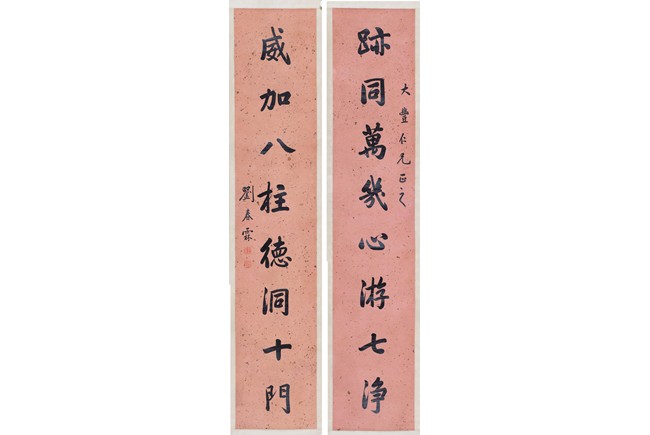 跡同萬幾心游七淨
大豐仁兄正之
威加八柱德洞十門
劉春霖